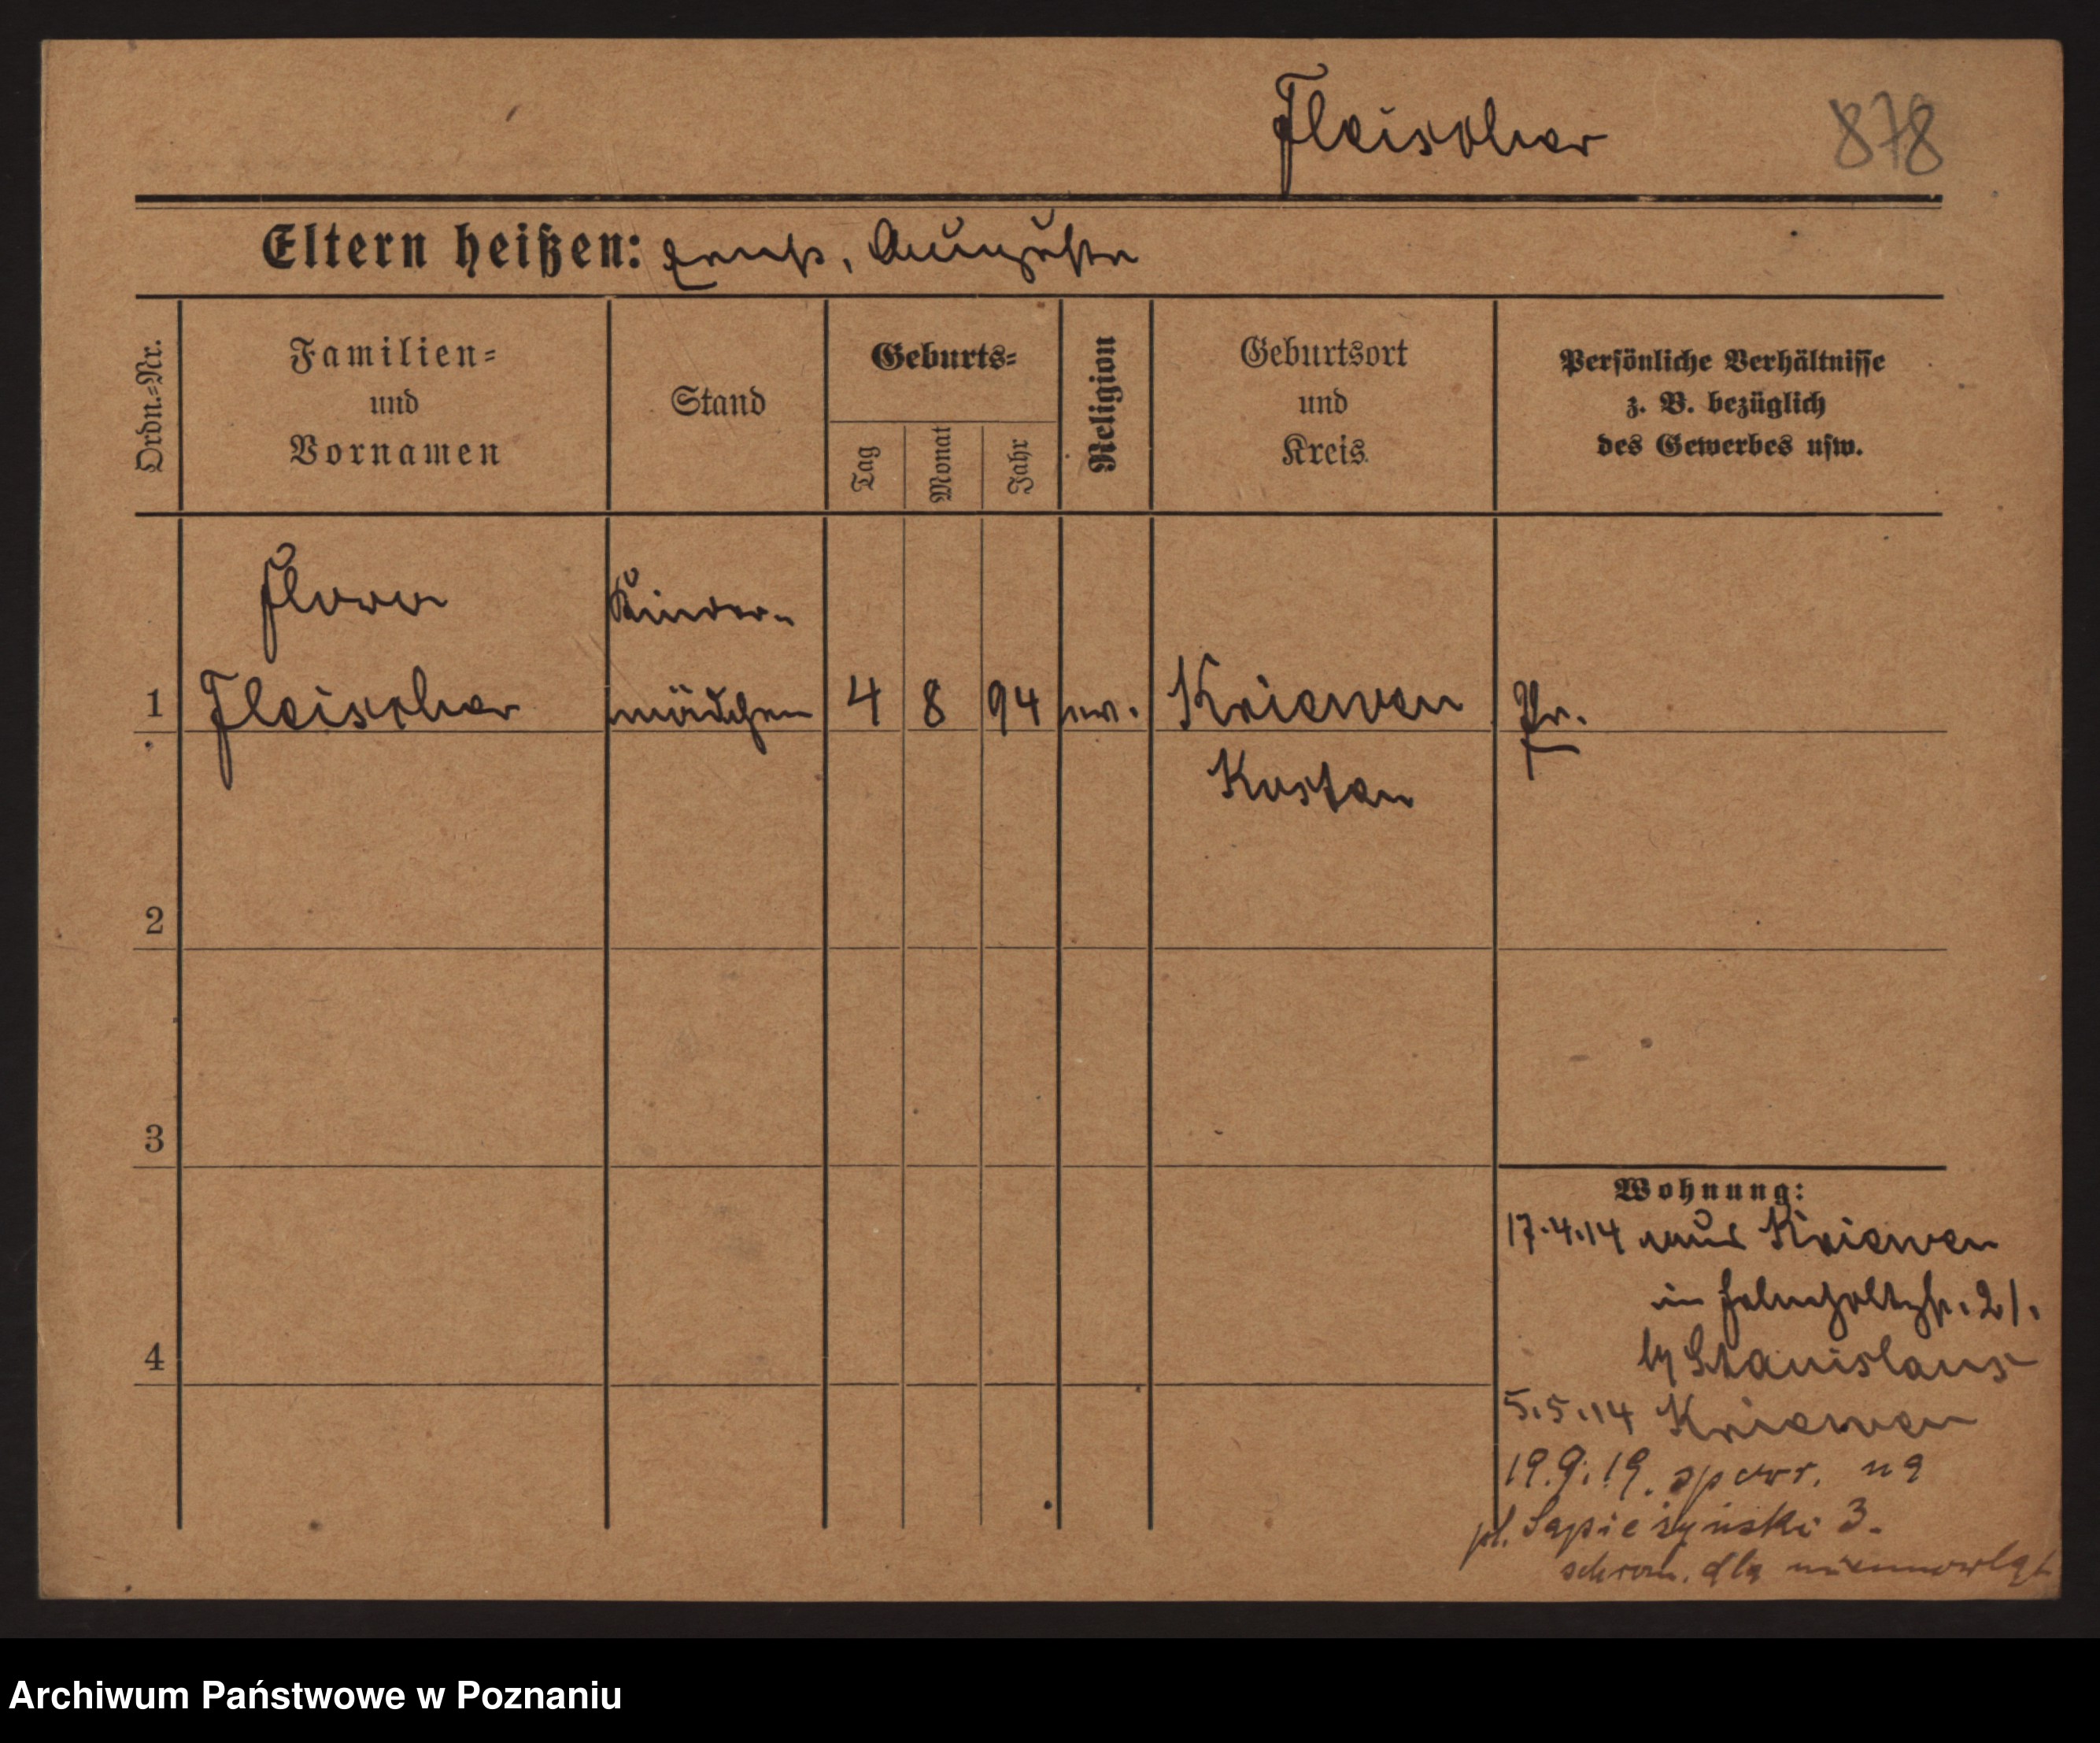 Fleischer 878
Eltern heißen: Ernst, Auguste
Ordn.-Nr. Familien- und Vornamen Stand Geburts- Tag Monat Jahr Religion Geburtsort und Kreis Persönliche Verhältnisse z. B. bezüglich des Gewerbes usw.
Flora Kinder-
1 Fleischer mädchen 4 8 94 ev. Kriewen Pr.
Kosten
2
3
4
Wohnung:
17.4.14 aus Kriewen
in Helmholtzstr. 21.
by Stanislaus
5.5.14 Kriewen
19.9.19. na
pl. Sapieżyński 3.
schron. dla niemowląt
Archiwum Państwowe w Poznaniu